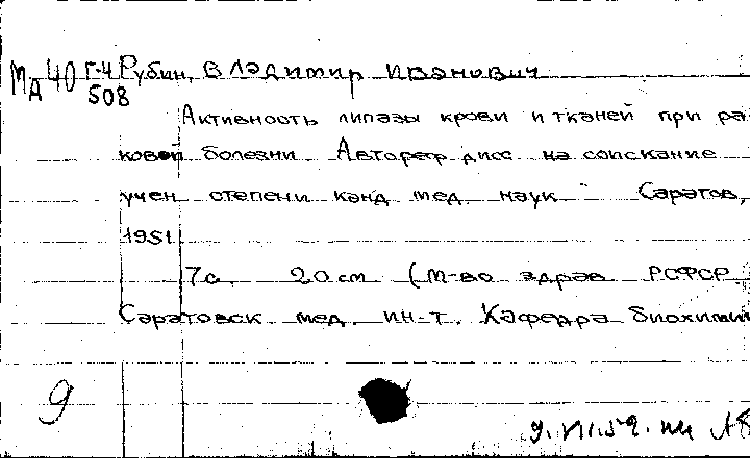 МА 40 Г-4 Рубин, Владимир Иванович
508
Активность липазы крови и тканей при ра
ковой болезни Автореф дисс на соискание
учен степени канд мед наук Саратов,
1951
7с. 20 см (М-во здрав РСФСР.
Саратовск мед. ин-т. Кафедра биохимии
9